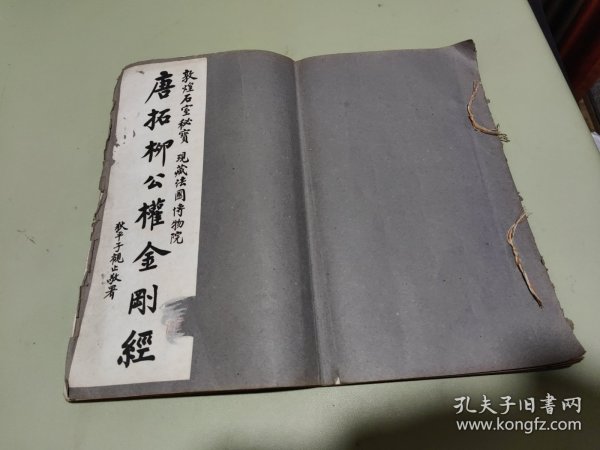 敦煌石室秘寳 現藏法國博物院
唐拓柳公權金剛經
狄平子觀止敬署
孔夫子旧书网
www.kongfz.com